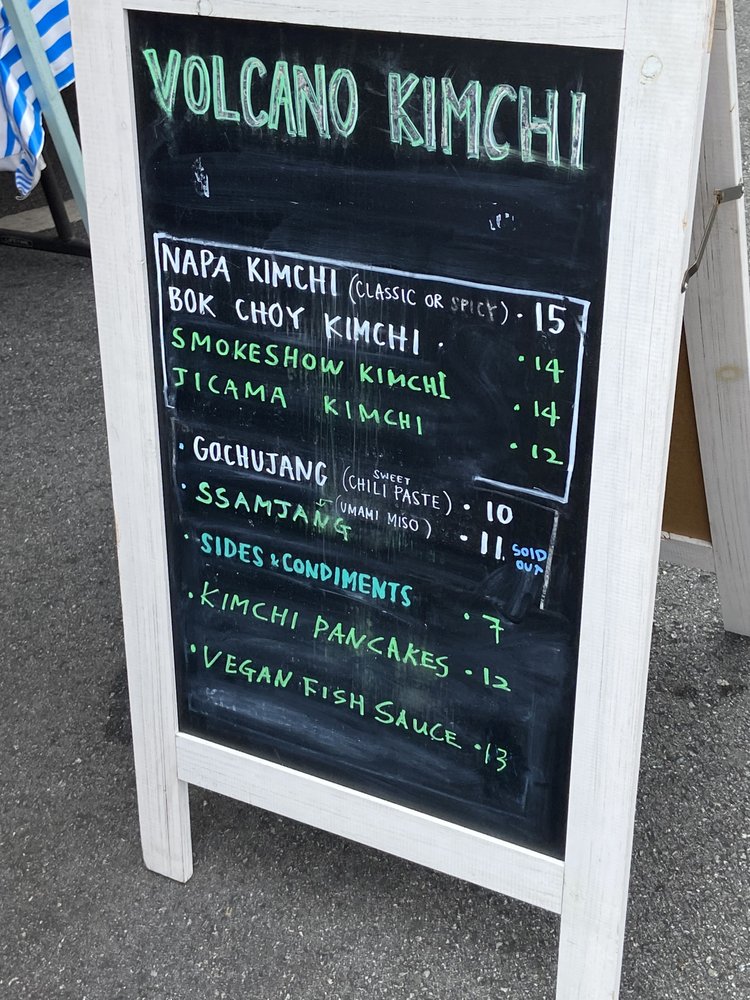 VOLCANO KIMCHI
NAPA KIMCHI (CLASSIC OR SPICY) · 15
BOK CHOY KIMCHI · · 14
SMOKESHOW KIMCHI · 14
JICAMA KIMCHI · 12
· GOCHUJANG (SWEET CHILI PASTE) · 10
· SSAMJANG (UMAMI MISO) · 11. SOLD OUT
· SIDES & CONDIMENTS · 7
· KIMCHI PANCAKES · 12
· VEGAN FISH SAUCE · 13